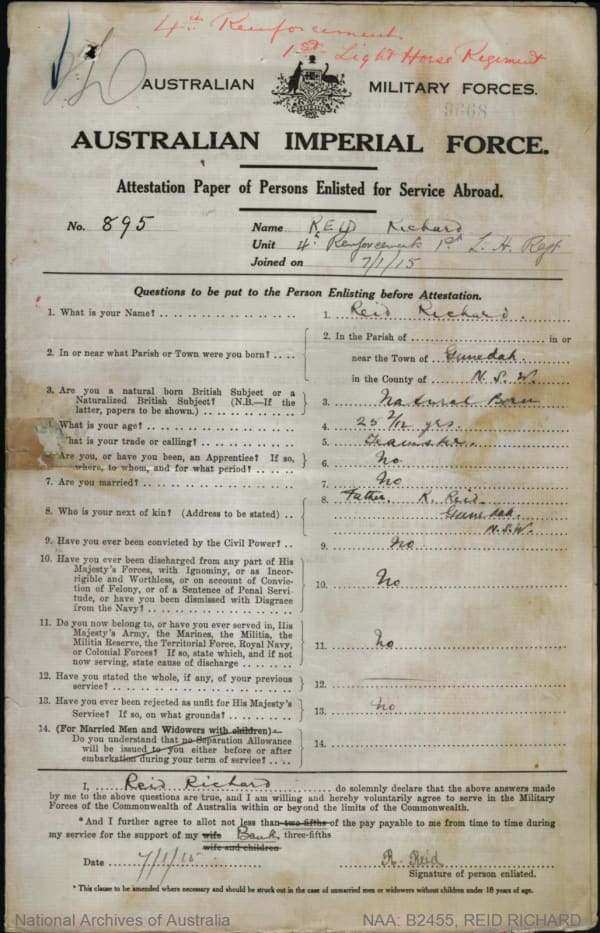 4th Reinforcements
1st Light Horse Regiment
AUSTRALIAN MILITARY FORCES.
3668
AUSTRALIAN IMPERIAL FORCE.
Attestation Paper of Persons Enlisted for Service Abroad.
No. 895 Name REID Richard
Unit 4th Reinforcements 1st L. H. Regt
Joined on 7/1/15
Questions to be put to the Person Enlisting before Attestation.
1. What is your Name? 1. Reid Richard
2. In or near what Parish or Town were you born? 2. In the Parish of in or
near the Town of Gunedah
in the County of N.S.W.
3. Are you a natural born British Subject or a
Naturalized British Subject? (N.B.—If the
latter, papers to be shown.) 3. Natural Born
What is your age? 4. 25 2/12 yrs.
What is your trade or calling? 5. Teamster.
Are you, or have you been, an Apprentice? If so,
where, to whom, and for what period? 6. No
7. Are you married? 7. No
8. Who is your next of kin? (Address to be stated) 8. Father R. Reid
Gunedah
N.S.W.
9. Have you ever been convicted by the Civil Power? 9. no
10. Have you ever been discharged from any part of His
Majesty's Forces, with Ignominy, or as Incor-
rigible and Worthless, or on account of Convic-
tion of Felony, or of a Sentence of Penal Servi-
tude, or have you been dismissed with Disgrace
from the Navy? 10. No
11. Do you now belong to, or have you ever served in, His
Majesty's Army, the Marines, the Militia, the
Militia Reserve, the Territorial Force, Royal Navy,
or Colonial Forces? If so, state which, and if not
now serving, state cause of discharge 11. no
12. Have you stated the whole, if any, of your previous
service? 12. —
13. Have you ever been rejected as unfit for His Majesty's
Service? If so, on what grounds? 13. no
14. (For Married Men and Widowers with children)—
Do you understand that no Separation Allowance
will be issued to you either before or after
embarkation during your term of service? 14.
I, Reid Richard do solemnly declare that the above answers made
by me to the above questions are true, and I am willing and hereby voluntarily agree to serve in the Military
Forces of the Commonwealth of Australia within or beyond the limits of the Commonwealth.
*And I further agree to allot not less than two-fifths of the pay payable to me from time to time during
my service for the support of my wife Bank three-fifths
wife and children
Date 7/1/15 R. Reid
Signature of person enlisted.
* This clause to be amended where necessary and should be struck out in the case of unmarried men or widowers without children under 18 years of age.
National Archives of Australia NAA: B2455, REID RICHARD